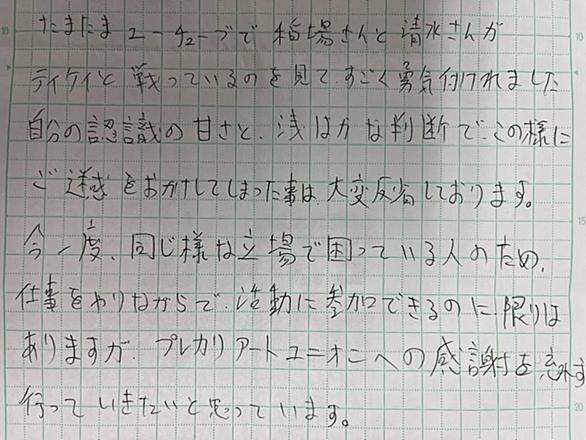 たまたまユーチューブで稲場さんと清水さんが
テイケイと戦っているのを見て、すごく勇気付けれました
自分の認識の甘さと、浅はかな判断で、この様に
ご迷惑をおかけしてしまった事は、大変反省しております。
今一度、同じ様な立場で困っている人のため、
仕事をやりながらで、活動に参加できるのに限りは
ありますが、プレカリアートユニオンへの感謝を忘れず
行っていきたいと思っています。
10
10
15
20